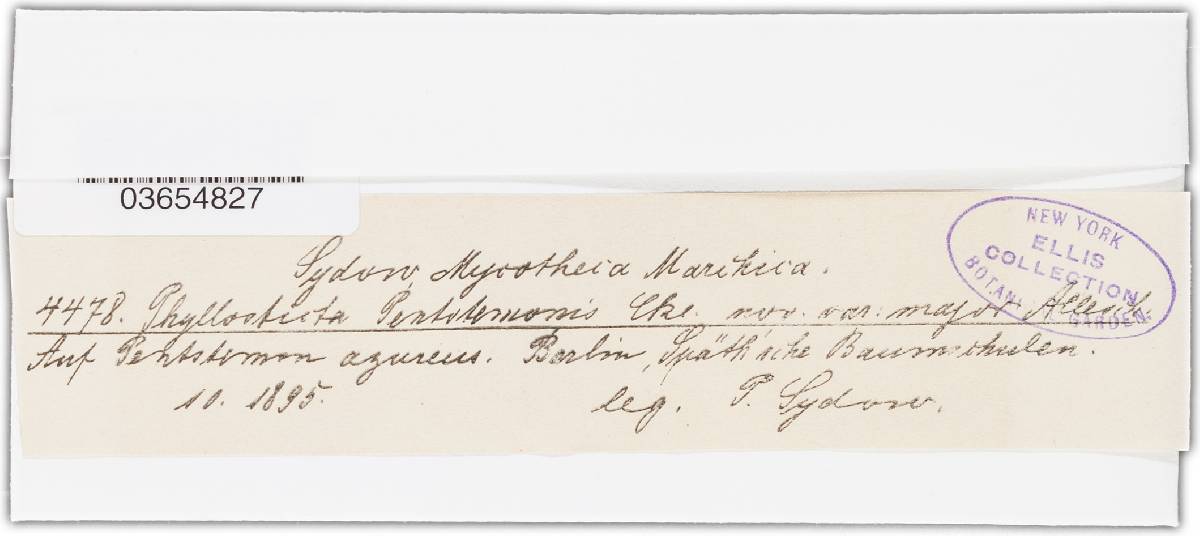 03654827
NEW YORK
ELLIS
COLLECTION
BOTANICAL GARDEN.
Sydow, Mycotheca Marchica.
4478. Phyllosticta Pentstemonis Cke. nov. var. major Allesch.
Auf Pentstemon azureus. Berlin, Späth'sche Baumschulen.
10. 1895. leg. P. Sydow.